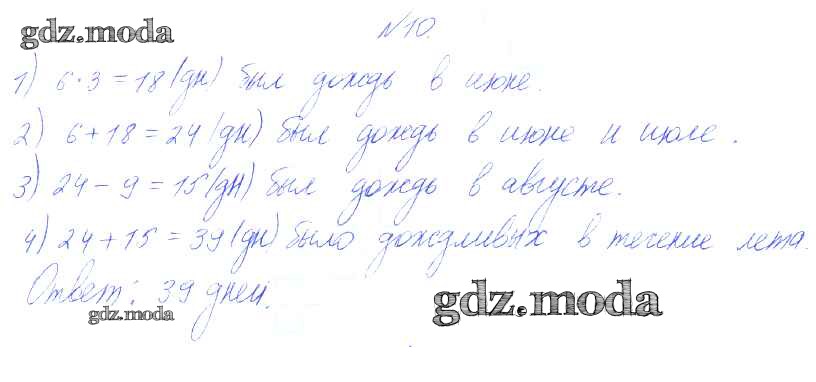 gdz.moda
№10.
1) 6·3=18(дн) был дождь в июне.
2) 6+18=24(дн) был дождь в июне и июле.
3) 24-9=15(дн) был дождь в августе.
4) 24+15=39(дн) было дождливых в течение лета.
Ответ: 39 дней.
gdz.moda
gdz.moda